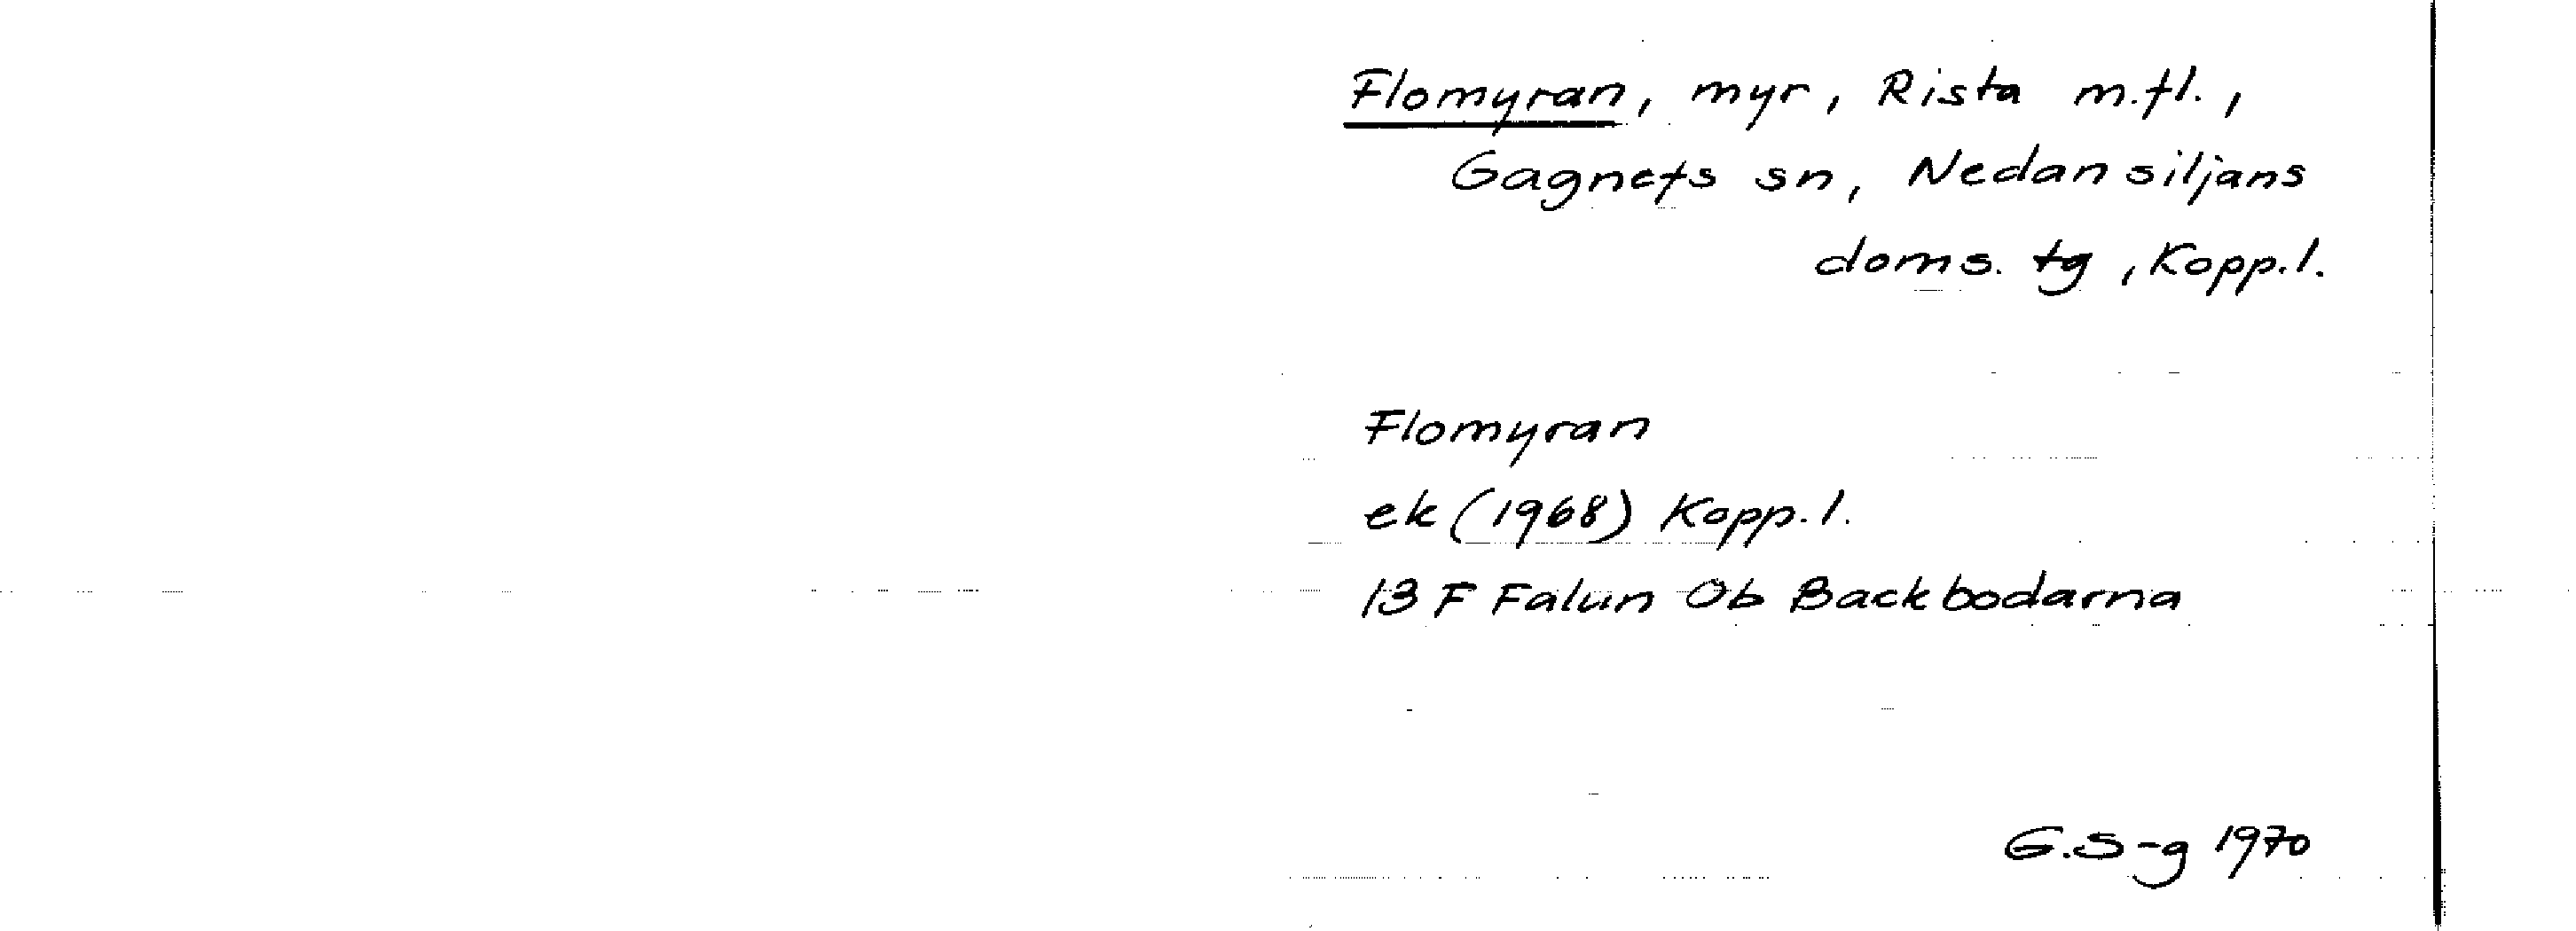 Flomyran, myr, Rista m.fl.,
Gagnefs sn, Nedansiljans
doms. tg, Kopp.l.
Flomyran
ek (1968) Kopp.l.
13 F Falun 0b Backbodarna
G.S-g 1970